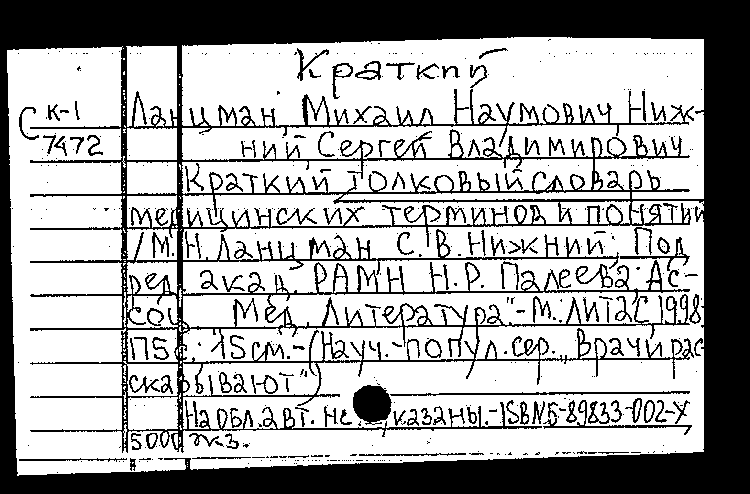 Краткий
С к-1 Ланцман, Михаил Наумович, Ниж-
7472 ний, Сергей Владимирович
Краткий толковый словарь
медицинских терминов и понятий
/ М. Н. Ланцман, С. В. Нижний; Под
ред. акад. РАМН Н.Р. Палеева; Ас-
соц. Мед. Литература".-М.: ЛИТАС, 1998.-
115 с.; 15 см.-(Науч.-попул. сер. „Врачи рас-
сказывают")
На обл. авт. не казаны.-ISBN 5-89833-002-X
5000 экз.